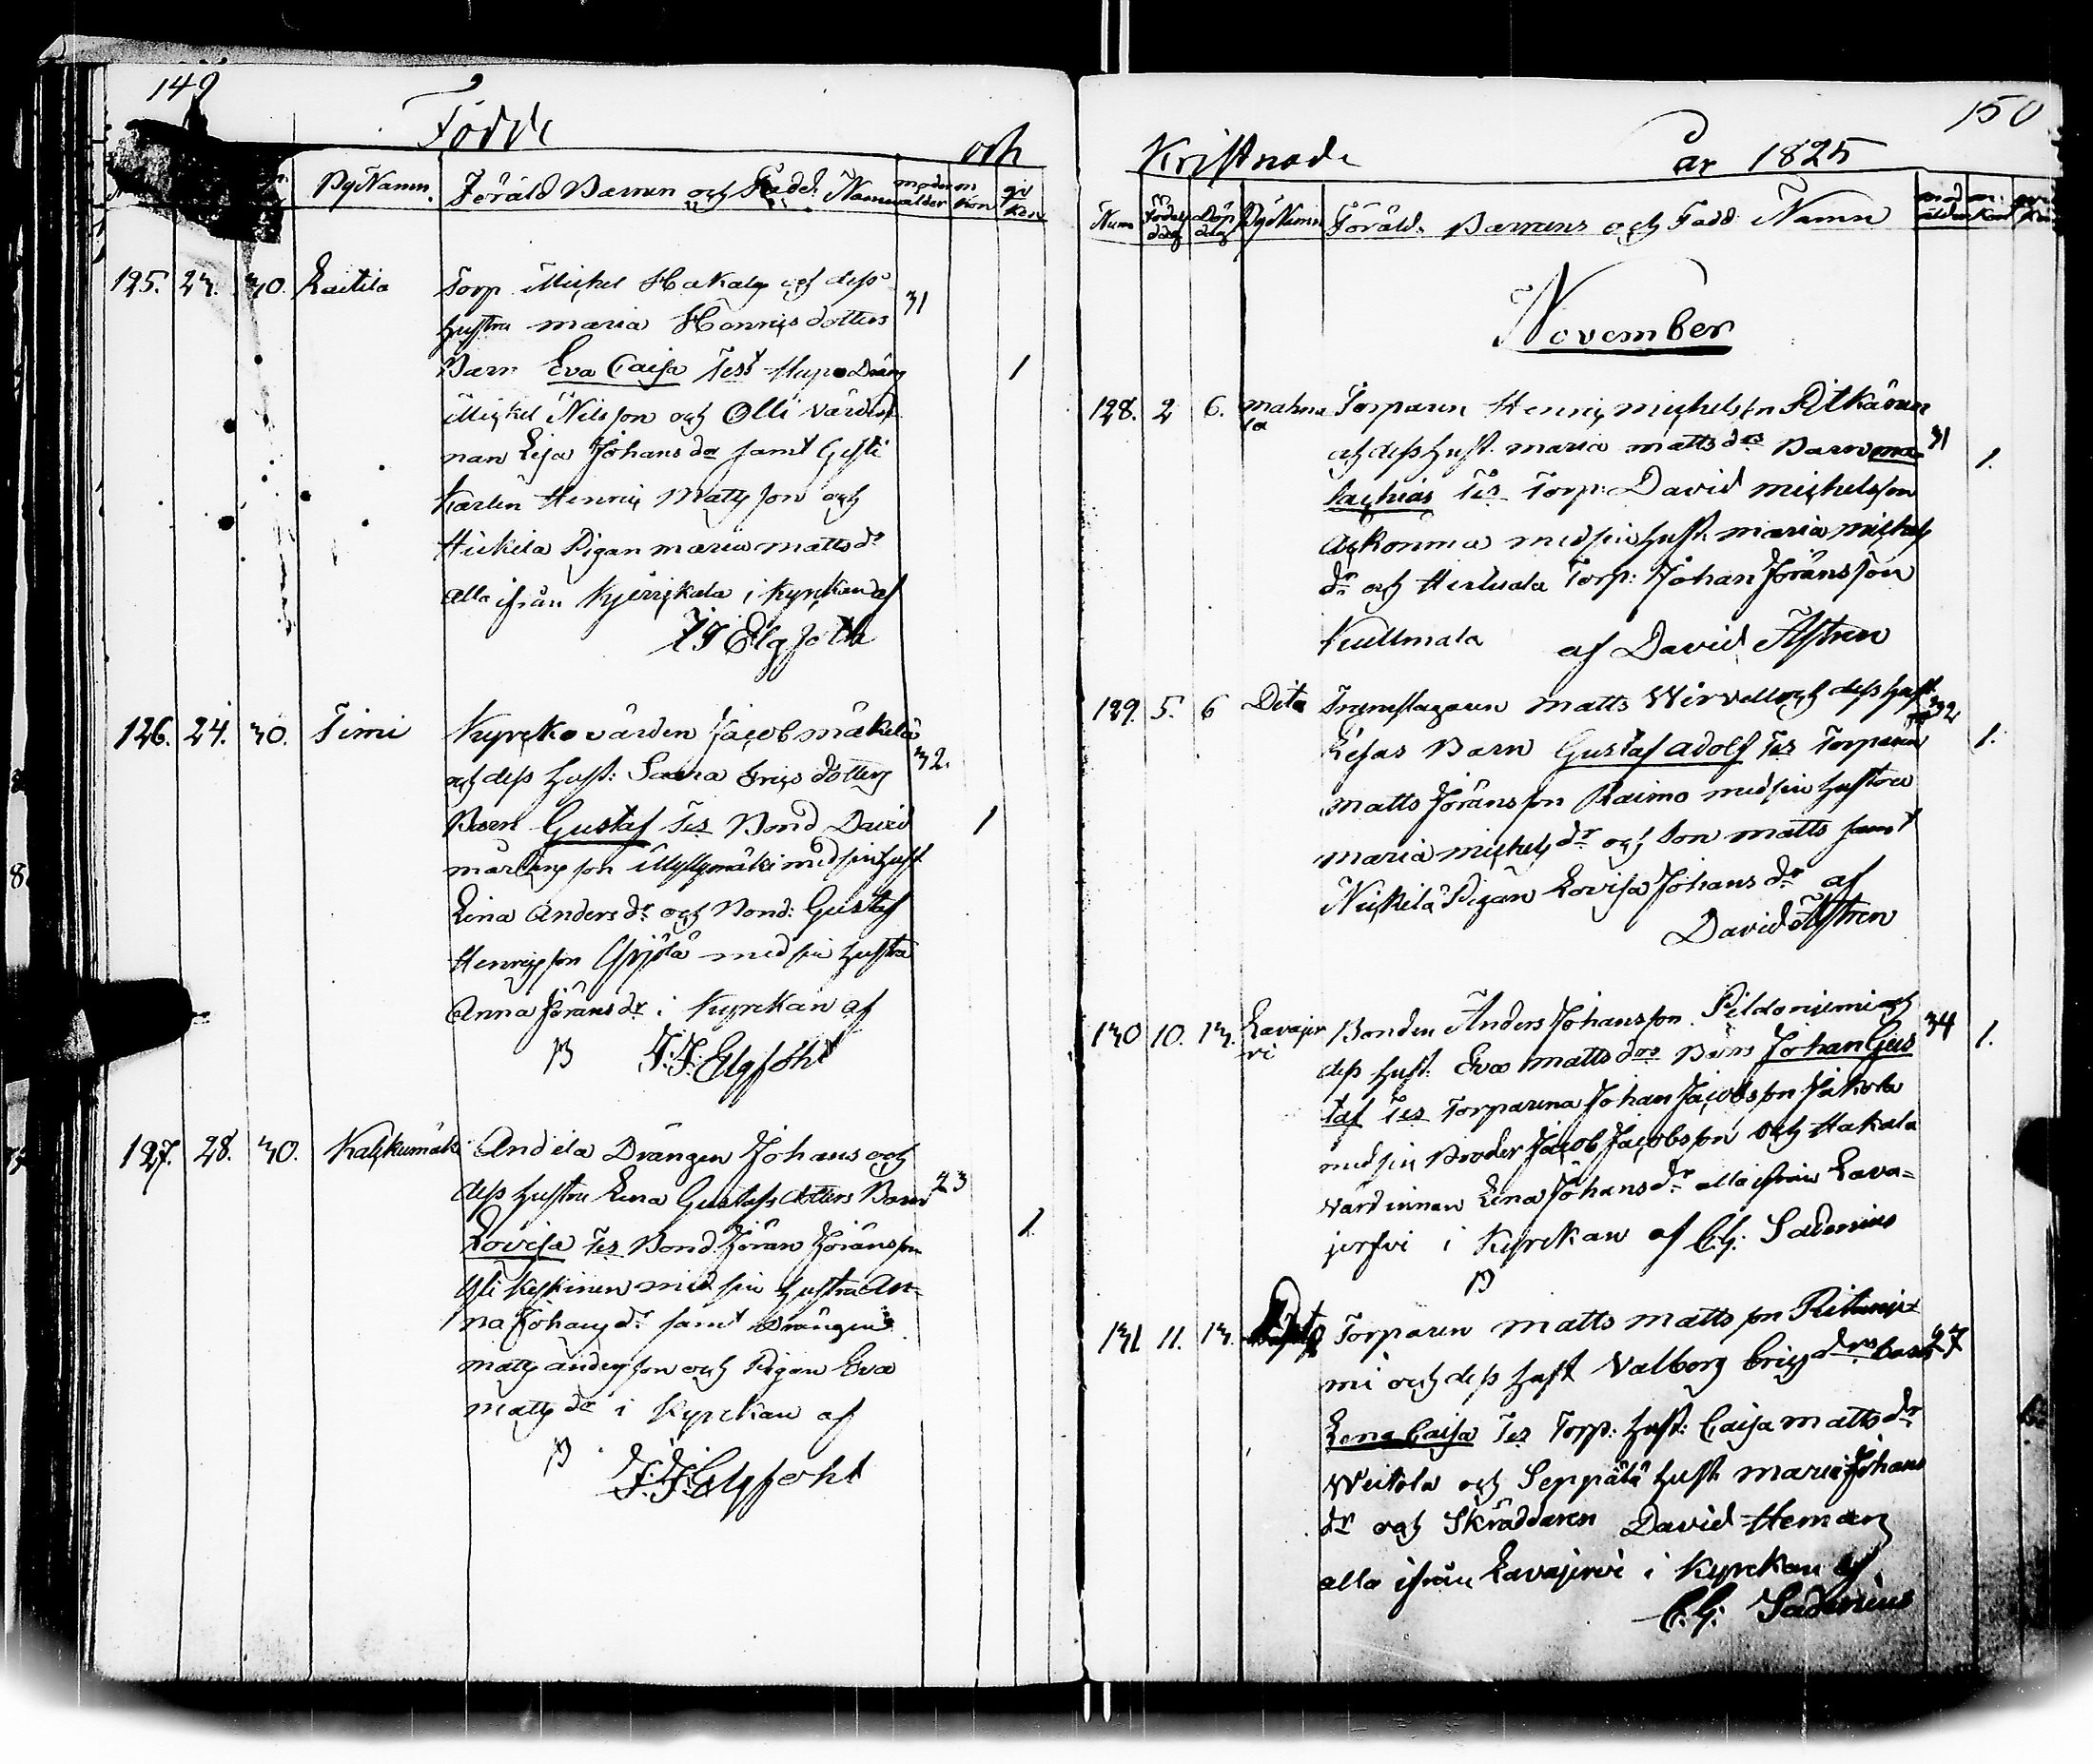 149
Födde
och
By Namn. Föräld Barnen och Fadd: Namn moder ålder m kön qv kön
125. 23. 30. Laitila Torp. Michel Hakala och dess 31
hustru Maria Henricsdotters
Barn Eva Caisa Test Dräng 1
Michel Nilsson och Olli värdin
nan Lisa Johans dr samt
Karlen Henric Mattsson och
Heikilä Pigan Maria Matts dr
alla ifrån i Kyrckan af
126. 24. 30. Timi Kyrckovärden Jacob Mäkelä
och dess Hust: Sanna Erics dotters 32.
Barn Gustaf Tes Bond David 1
Mårtensson Myllymäki med sin Hust
Lina Anders dr och Bond: Gustaf
Henricsson med sin hustru
Anna Jörans dr i Kyrckan af
127. 28. 30. Andela Drängen Johans och
dess hustru Lena Gustafs dotters Barn 23
Lovisa Tes Bond. Jöran Jöransson 1
Yli Keskinen med sin hustru An-
na Johans dr samt Drängen
Matts Andersson och Pigan Eva
Matts dr i Kyrckan af
150
Kristnade år 1825
Num Födels dag Döp dag By Namn Föräld. Barnens och Fadd Namn mod ålder m. kön qv kön
November
128. 2 6. Torparen Henric Michelsson Pitkänen
och dess hust. Maria Matts drs Barn Ma- 31 1.
tachias Tes Torp: David Michelsson
med sin hust. Maria Michels
dr och Torp: Johan Jöransson
Kullmala af David Åstren
129. 5. 6 Dito Matts Wirvell och dess hust 32
Lisas Barn Gustaf Adolf Tes Torparen 1.
Matts Jöransson Raimo med sin hustru
Maria Michels dr och Son Matts samt
Pigan Lovisa Johans dr af
David Åstren
130 10. 13. Lavajer vi Bonden Anders Johansson och 34
dess hust. Eva Matts drs Barn Johan Gus 1.
taf Tes Torparena Johan Jacobsson
med sin Broder Jacob Jacobsson och Hakala
värdinnan Lena Johans dr alla ifrån Lava-
jerfvi i Kyrckan af C.G. Sadenius
131 11. 13. Torparen Matts Mattsson
mi och dess hust Valborg Erics drs barn 27
Lena Caisa Tes Torp: hust: Caisa Matts dr
och Seppälä hust. Maria Johans
dr och Skräddaren David Heman
alla ifrån Lavajervi i Kyrckan af
C.G. Sadenius